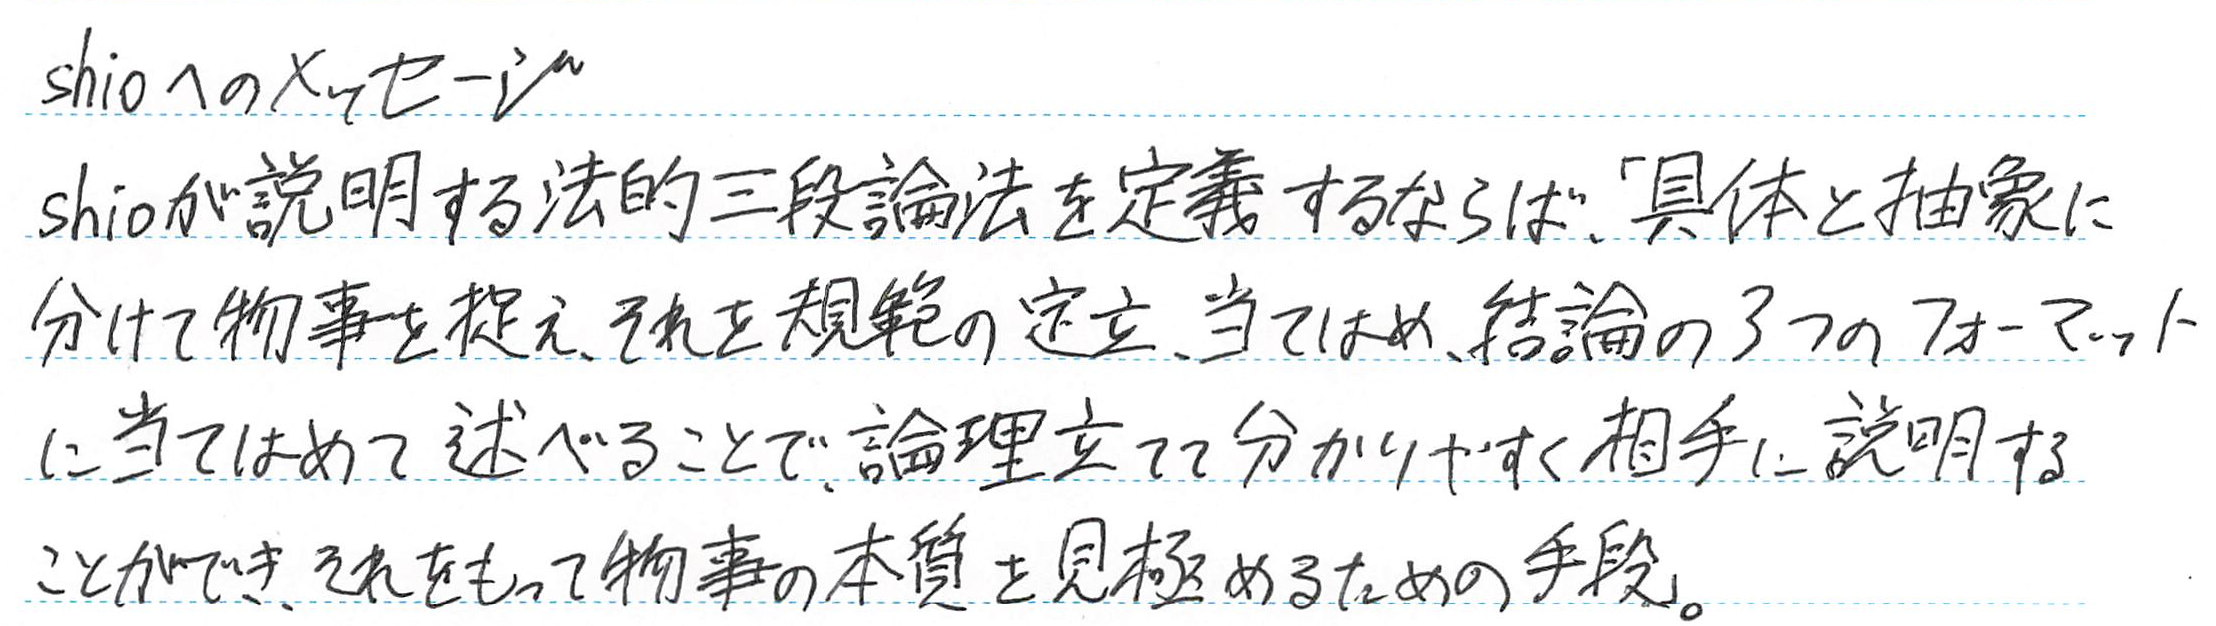 shioへのメッセージ
shioが説明する法的三段論法を定義するならば、「具体と抽象に
分けて物事を捉え、それを規範の定立、当てはめ、結論の3つのフォーマット
に当てはめて述べることで、論理立てて分かりやすく相手に説明する
ことができ、それをもって物事の本質を見極めるための手段」。